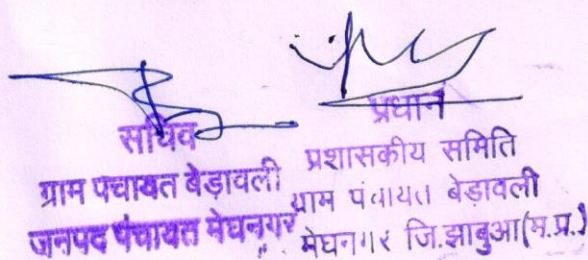 सचिव
ग्राम पंचायत बेड़ावली
जनपद पंचायत मेघनगर
प्रधान
प्रशासकीय समिति
ग्राम पंचायत बेड़ावली
मेघनगर जि.झाबुआ(म.प्र.)